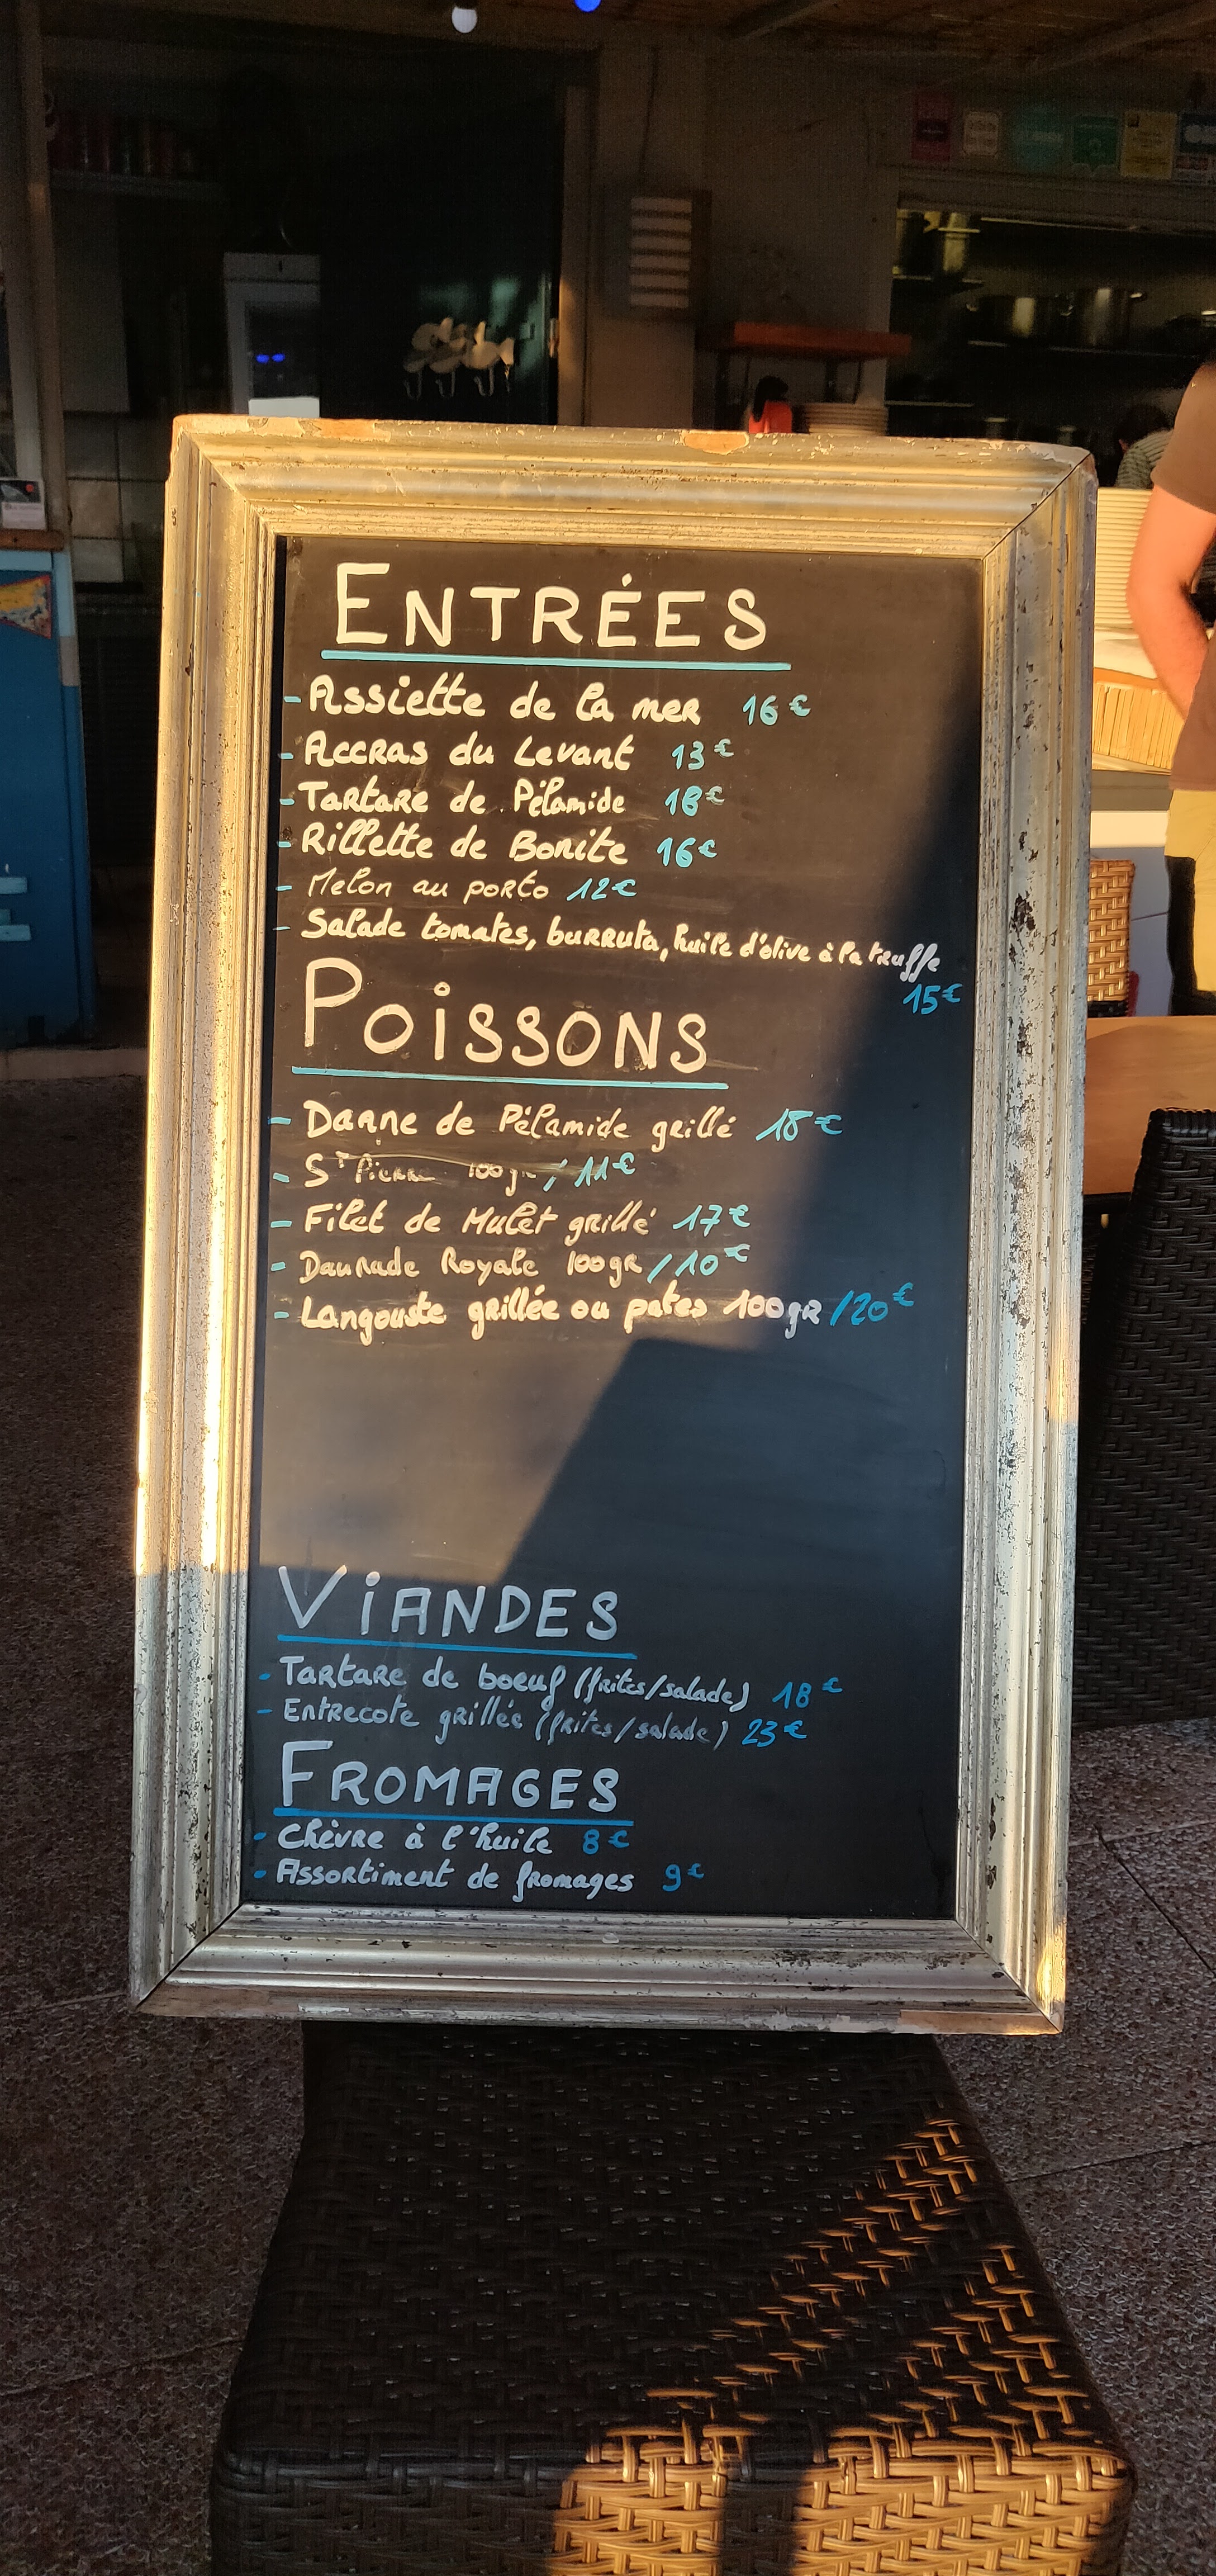 ENTRÉES
- Assiette de la mer 16€
- Accras du Levant 13€
- Tartare de Pélamide 18€
- Rillette de Bonite 16€
- Melon au porto 12€
- Salade tomates, burruta, huile d'olive à la truffe
15€
POISSONS
- Darne de Pélamide grillé 18€
- St Pierre 100gr / 11€
- Filet de Mulet grillé 17€
- Daurade Royale 100gr / 10€
- Langouste grillée ou pates 100gr / 20€
VIANDES
- Tartare de boeuf (frites/salade) 18€
- Entrecote grillée (frites/salade) 23€
FROMAGES
- Chèvre à l'huile 8€
- Assortiment de fromages 9€